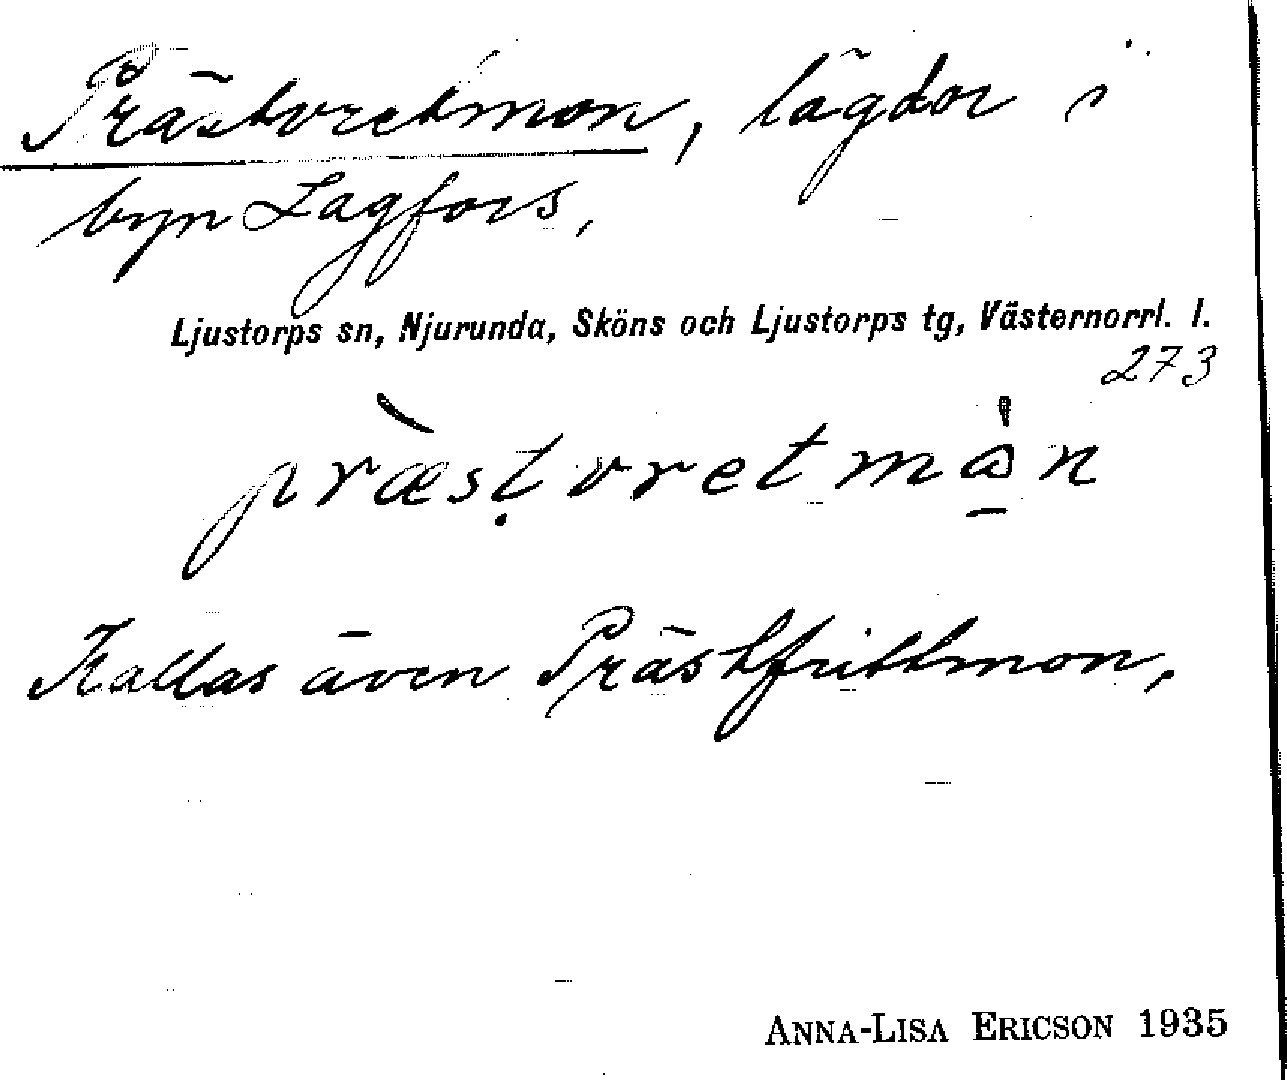 Prästvretmon, lägdor i
byn Lagfors.
Ljustorps sn, Njurunda, Sköns och Ljustorps tg, Västernorrl. l.
273
præ̀sṭvretmån
Kallas även Prästfrittmon.
ANNA-LISA ERICSON 1935